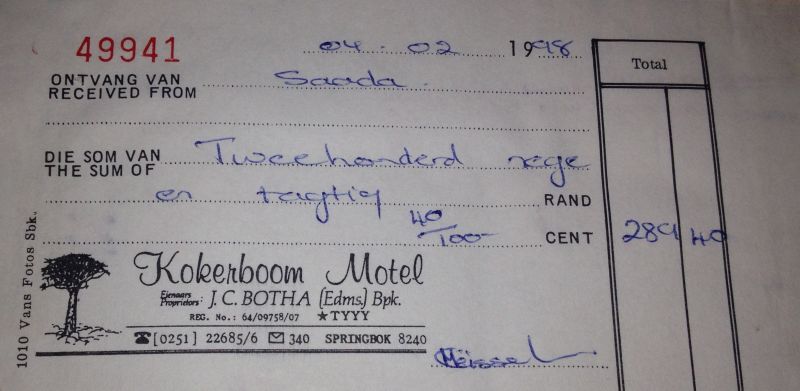 49941 04 . 02 1998 Total
ONTVANG VAN
RECEIVED FROM Saada.
DIE SOM VAN
THE SUM OF Tweehonderd nege
en tagtig RAND
40/100 CENT 289 40
Kokerboom Motel
Eienaars
Proprietors: J.C. BOTHA (Edms) Bpk.
REG. No.: 64/09758/07 ★TYYY
☎[0251] 22685/6 ✉ 340 SPRINGBOK 8240
1010 Vans Fotos Sbk.